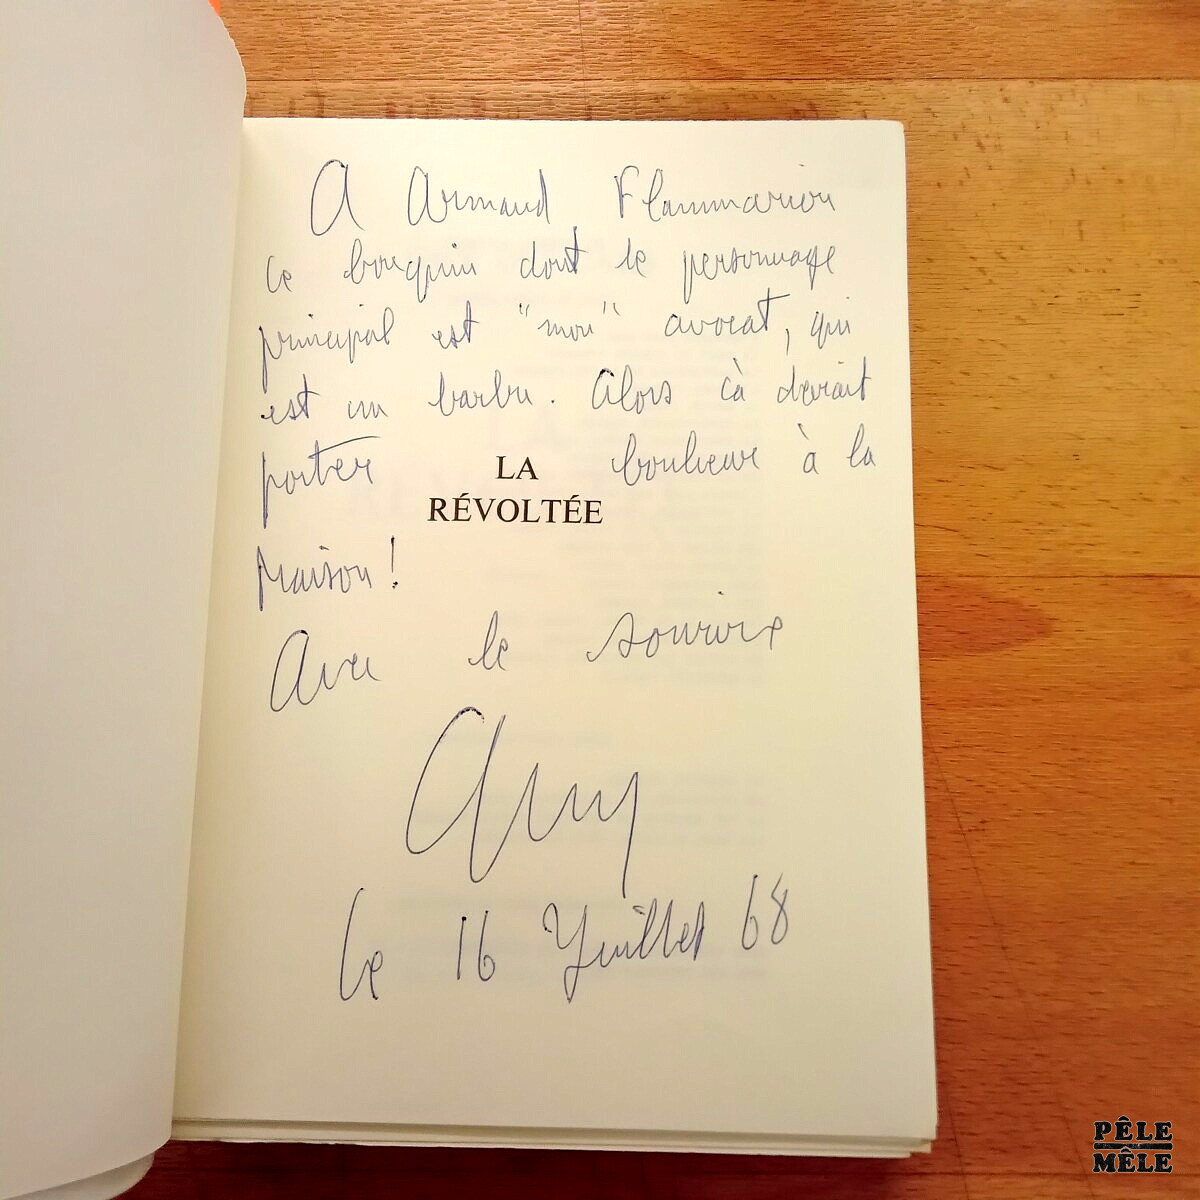 A Armand Flammarion
ce bouquin dont le personnage
principal est "mon" avocat, qui
est un barbu. Alors çà devrait
porter bonheur à la
LA
RÉVOLTÉE
Maison !
Avec le sourire
Le 16 Juillet 68
PÊLE
MÊLE